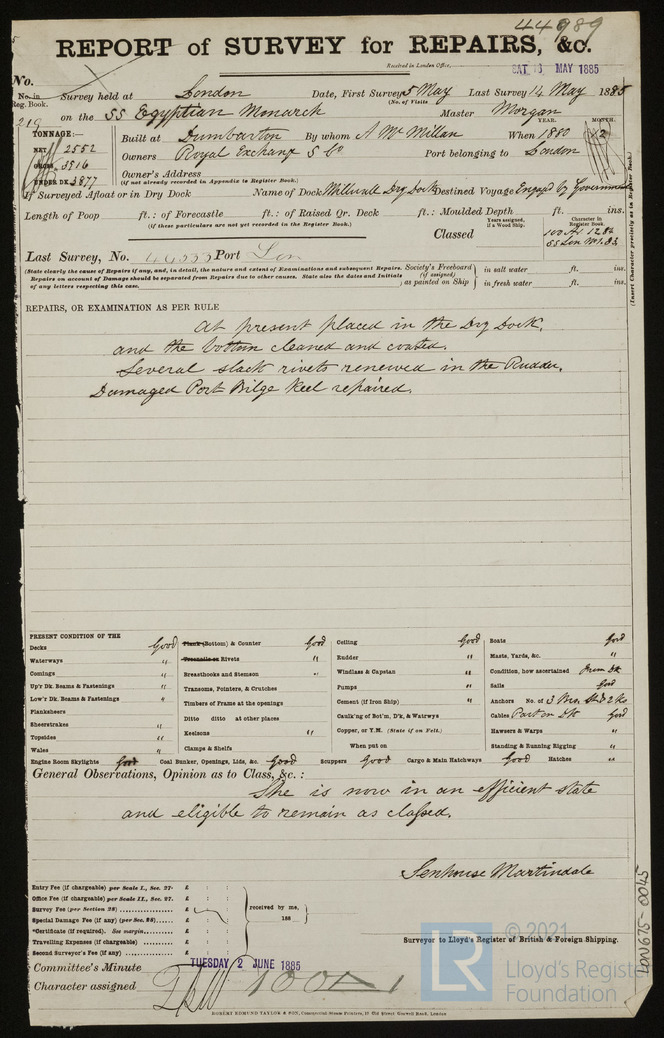 44989
REPORT of SURVEY for REPAIRS, &c.
Received in London Office,
SAT. 16 MAY 1885
No.
No. in Reg. Book. Survey held at London Date, First Survey 5 May Last Survey 14 May 1885
(No. of Visits
219 on the SS Egyptian Monarch Master Morgan
TONNAGE:— YEAR. MONTH.
NET 2552 Built at Dumbarton By whom A McMillan When 1880 12
GROSS 3916 Owners Royal Exchange S Co Port belonging to London
UNDER DK 3877 Owner's Address
(if not already recorded in Appendix to Register Book.)
If Surveyed Afloat or in Dry Dock Name of Dock Millwall Dry Dock Destined Voyage Engagd by Government
Length of Poop ft.: of Forecastle ft.: of Raised Qr. Deck ft.: Moulded Depth ft. ins.
(if these particulars are not yet recorded in the Register Book.)
Years assigned, if a Wood Ship. Character in Register Book.
Classed 100 A1 12.84
SS Lon No1.83
Last Survey, No. Port Lon
(State clearly the cause of Repairs if any, and, in detail, the nature and extent of Examinations and subsequent Repairs. Society's Freeboard in salt water ft. ins.
Repairs on account of Damage should be separated from Repairs due to other causes. State also the dates and Initials (if assigned)
of any letters respecting this case. as painted on Ship in fresh water ft. ins.
(Insert Character precisely as in Register Book.)
REPAIRS, OR EXAMINATION AS PER RULE
At present placed in the Dry Dock,
and the bottom cleaned and coated.
Several slack rivets renewed in the Rudder,
Damaged Port Bilge Keel repaired.
PRESENT CONDITION OF THE
Decks Good Plank (Bottom) & Counter Good Ceiling Good Boats Good
Waterways " Treenails or Rivets " Rudder " Masts, Yards, &c. "
Comings " Breasthooks and Stemson " Windlass & Capstan " Condition, how ascertained From Dk
Up'r Dk. Beams & Fastenings " Transoms, Pointers, & Crutches Pumps " Sails Good
Low'r Dk. Beams & Fastenings " Timbers of Frame at the openings Cement (if Iron Ship) " Anchors No. of 3 Brs. St. & 2 Ks.
Planksheers Ditto ditto at other places Caulk'ng of Bot'm, D'k, & Watrwys Cables Part on Dk Good
Sheerstrakes " Keelsons " Copper, or Y.M. (State if on Felt.) Hawsers & Warps "
Topsides " Clamps & Shelfs When put on Standing & Running Rigging "
Wales "
Engine Room Skylights Good Coal Bunker, Openings, Lids, &c. Good Scuppers Good Cargo & Main Hatchways Good Hatches "
General Observations, Opinion as to Class, &c.:
She is now in an efficient state
and eligible to remain as classed.
Senhouse Martindale
Entry Fee (if chargeable) per Scale I., Sec. 27. £ : :
Office Fee (if chargeable) per Scale II., Sec. 27. £ : :
Survey Fee (per Section 28) £ : : received by me,
Special Damage Fee (if any) (per Sec. 28) £ : : 188
*Certificate (if required). See margin. £ : :
Travelling Expenses (if chargeable) £ : :
Second Surveyor's Fee (if any) £ : :
Surveyor to Lloyd's Register of British & Foreign Shipping.
Committee's Minute TUESDAY 2 JUNE 1885
Character assigned 100A1
ROBERT EDMUND TAYLOR & SON, Commercial Steam Printers, Old Street Goswell Road, London
LON675-0045
LR
© 2021
Lloyd's Register
Foundation